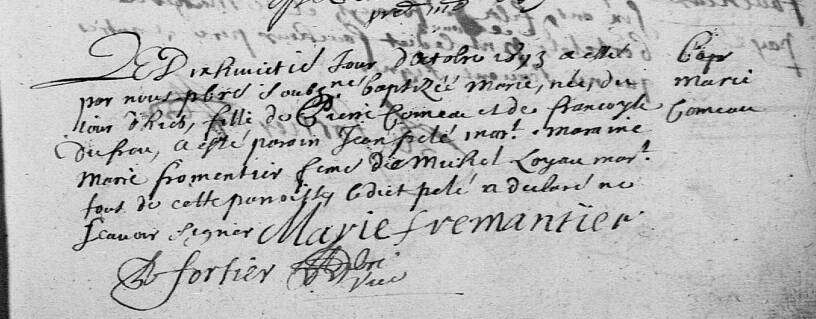 Le Dixhuictie Jour d'Octobre 1693 a esté
par nous pbre soubsné baptizée Marie, née du
iour d'hier, fille de Pierre Comeau et de Francoyse
Dufrou, a esté parain Jean pelé mart. maraine
Marie fromentier feme de Michel Loyau mart.
tous de cette paroisse ledict pelé a declaré ne
scavoir signer Marie fremantier
fortier pbri
Vic
Bap
marie
Comeau